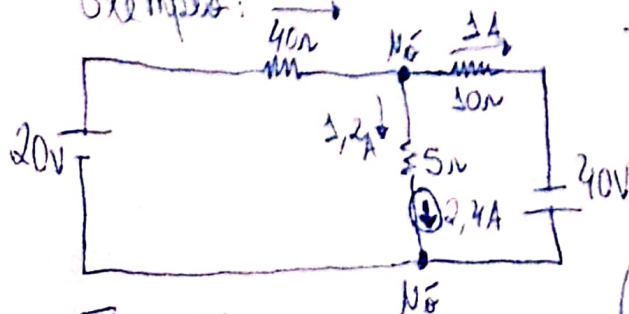 Exemplo:
40Ω
Nó
1A
10Ω
1,2A
5Ω
20V
2,4A
40V
Nó